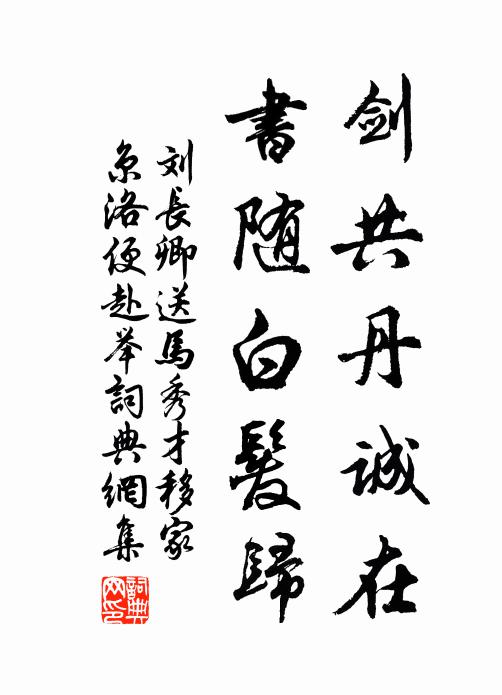 剑共丹诚在
書随白髮歸
刘長卿送馬秀才移家
京洛便赴举詞典網集